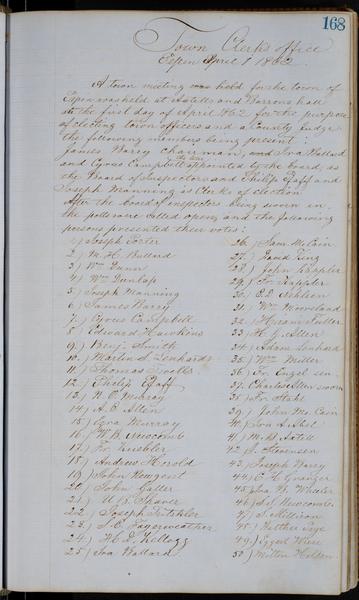 168
Town Clerk's office
Pepin April 1 1862
A town meeting was held for the town of
Pepin was held at Axtells and Barrons hall
the first day of April 1862 for the purpose
of electing town officers and a County Judge
the following members being present:
James Barry Chairman, and Ira Ballard
and Cyrus Campbell appointed to the board, as
the Board of Inspectors and Philip Pfaff and
Joseph Manning as Clerks of election
After the board of inspectors being sworn in
the polls were called open, and the following
persons presented their votes:
1) Joseph Porter
2) M. H. Ballard
3) Wm Dunn
4) Wm Dunlap
5) Joseph Manning
6) James Barry
7) Cyrus C. Campbell
8) Edward Hawkins
9) Benj. Smith
10) Martin S. Lenhardt
11) Thomas
12) Philip Pfaff
13) N. O. Murray
14) A. C. Allen
15) Ezra Murray
16) W. B. Newcomb
17) Fr. Kuebler
18) Andrew Herold
19) John Newgard
20) John Fuller
21) U. B. Shaver
22) Joseph
23) S. C. Fayerweather
24) H. D. Kellogg
25) Ira Ballard
26) Sam. McCain
27) David
28) John Kappler
29) Fr. Kappler
30)
31) Wm Mooreland
32) Hiram Fuller
33) H. J. Allen
34) Adam Lenhard
35) Wm Miller
36) Fr. Engel sen.
37) Charles Allen sworn
38) Fr. Stahl
39) John McCain
40) Ira A.
41) M. B. Axtell
42) Stevensen
43) Joseph Barry
44) E. H. Granger
45) Ira W. Wheeler
46) Newcombe
47) S. Millison
48) Luther
49) Ezard Wiese
50) Milton Holden